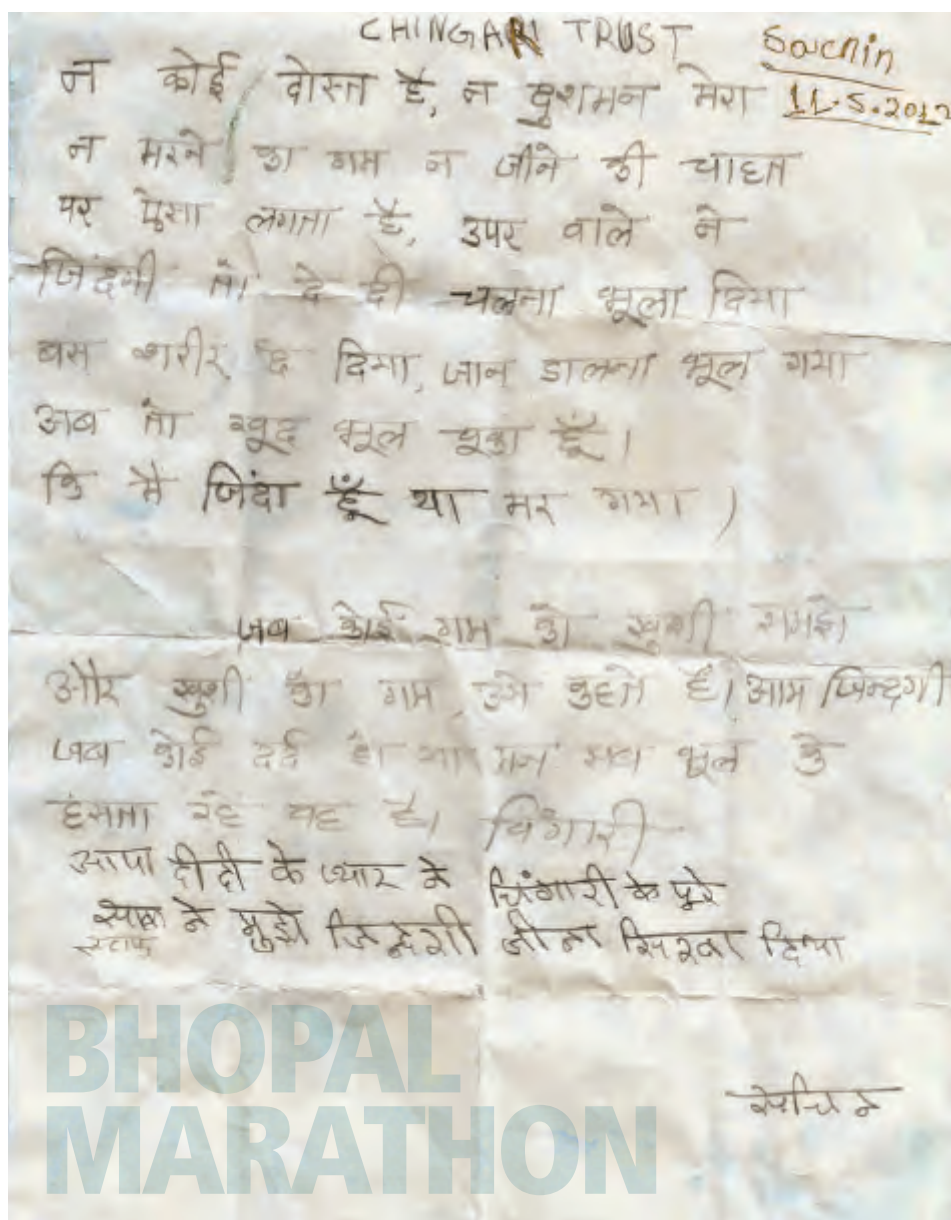 CHINGARI TRUST
Sachin
11.5.2012
न कोई दोस्त है, न दुशमन मेरा
न मरने का गम न जीने की चाहत
पर ऐसा लगता है, उपर वाले ने
जिंदगी तो दे दी चलना भूला दिया
बस शरीर दे दिया, जान डालना भूल गया
अब तो खूद भूल चूका हूँ।
कि मै जिंदा हूँ या मर गया )
जब कोई गम को खुशी समझे
और खुशी को गम उसे कहते है। आम जिन्दगी
जब कोई दर्द हो या मन सब भूल के
हंसता रहे यह है। चिंगारी
आपा दीदी के प्यार ने चिंगारी के पुरे
स्टाफ ने मुझे जिन्देगी जीना सिखा दिया
सचिन
BHOPAL
MARATHON